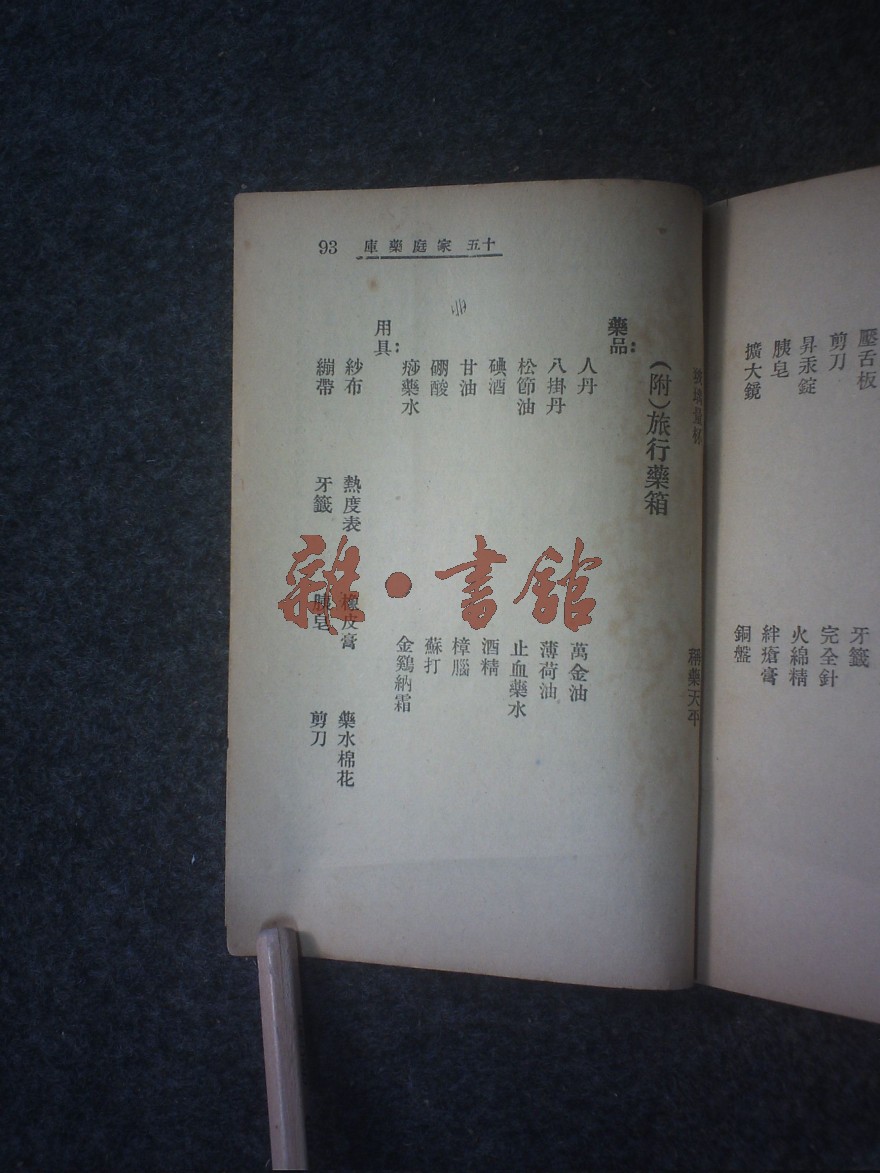 壓舌板
牙籤
剪刀
完全針
昇汞錠
火綿精
胰皂
絆瘡膏
擴大鏡
銅盤
稱藥天平
十五 家庭藥庫 93
(附)旅行藥箱
藥品：
人丹
萬金油
八掛丹
薄荷油
松節油
止血藥水
碘酒
酒精
甘油
樟腦
硼酸
蘇打
痧藥水
金鷄納霜
用具：
紗布 熱度表 橡皮膏 藥水棉花
繃帶 牙籤 胰皂 剪刀
雜·書館